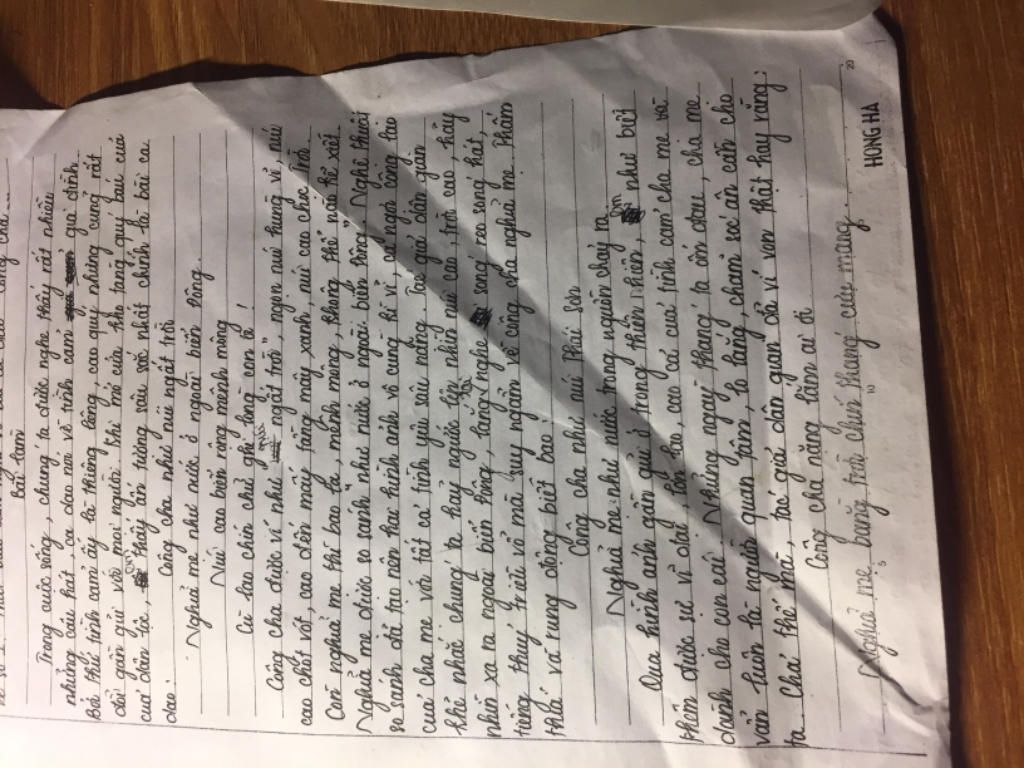 Bài làm
Trong cuộc sống, chúng ta được nghe thấy rất nhiều
những câu hát, ca dao nói về tình cảm gia đình.
Bởi thứ tình cảm ấy là thiêng liêng, cao quý nhưng cũng rất
đỗi gần gũi với mọi người. Khi mở cửa kho tàng quý báu của
của dân tộc, em thấy ấn tượng sâu sắc nhất chính là bài ca
dao:
Công cha như núi ngất trời
Nghĩa mẹ như nước ở ngoài biển Đông.
Núi cao biển rộng mênh mông
Cù lao chín chữ ghi lòng con ơi!
Công cha được ví như núi "ngất trời", ngọn núi hùng vĩ, núi
cao chót vót, cao đến mây tầng mây xanh, núi cao chọc trời.
Còn nghĩa mẹ thì bao la, mênh mông, không thể nào kể xiết.
Nghĩa mẹ được so sánh như nước ở ngoài biển Đông". Nghệ thuật
so sánh đã tạo nên hai hình ảnh vô cùng kì vĩ, ca ngợi công lao
của cha mẹ và tất cả tình yêu sâu nặng. Tác giả dân gian
khẽ nhắc chúng ta hãy ngước lên nhìn núi cao, trời cao, hãy
nhìn xa ra ngoài biển Đông, lắng tai nghe sóng reo sóng hát,
tiếng thuỷ triều vỗ mà suy ngẫm về công cha nghĩa mẹ. Thấm
thía và rung động biết bao!
Công cha như núi Thái Sơn
Nghĩa mẹ như nước trong nguồn chảy ra
Qua hình ảnh gần gũi ở trong thiên nhiên, em như biết
thêm được sự vĩ đại, lớn lao, cao cả của tình cảm cha mẹ
dành cho con cái. Những ngày tháng ta ốm đau, cha mẹ
vẫn luôn là người quan tâm, lo lắng, chăm sóc ân cần cho
ta. Chả thế mà, tác giả dân gian đã ví von thật hay rằng:
Công cha nặng lắm ai ơi
Nghĩa mẹ bằng trời chín tháng cưu mang.
5
10
20
HONG HA